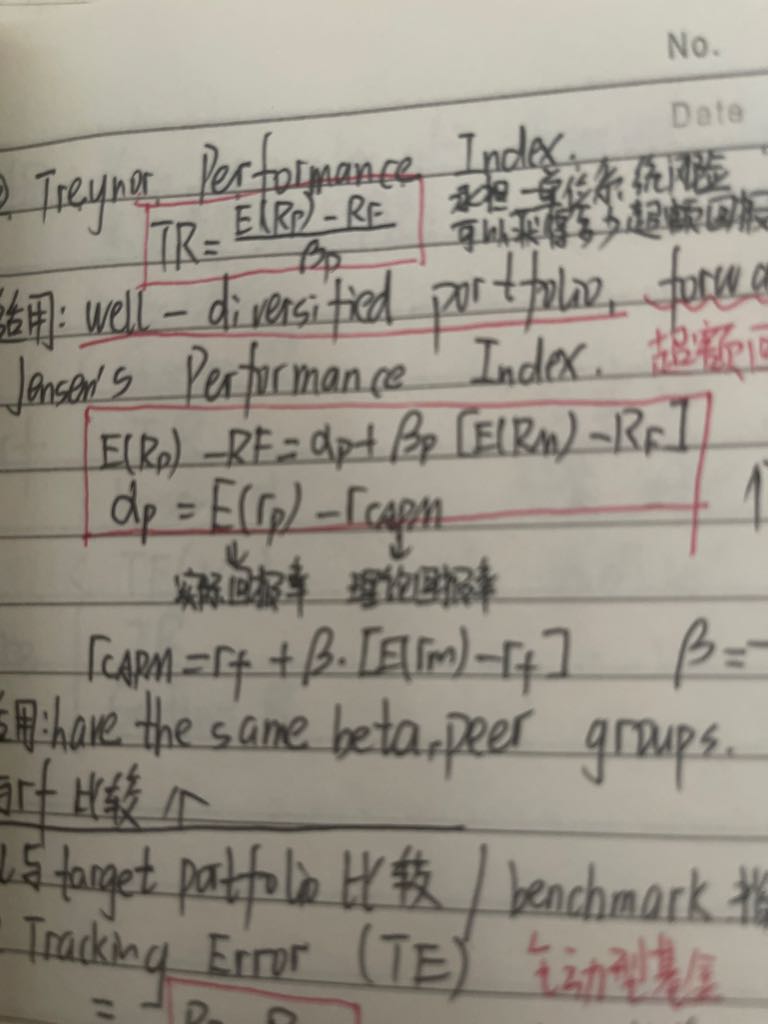 No.
Date
Treynor Performance Index.
承担一单位系统风险
TR = E(Rp) - RF / βp
可以获得多少超额回报
适用: well-diversified portfolio,
Jensen's Performance Index. 超额回
E(Rp) - RF = αp + βp [E(Rm) - RF]
αp = E(rp) - rCAPM
实际回报率 理论回报率
rCAPM = rf + β · [E(rm) - rf] β =
适用: have the same beta, peer groups.
与rf 比较 ↑
与target portfolio 比较 / benchmark
Tracking Error (TE) 主动型基金
=